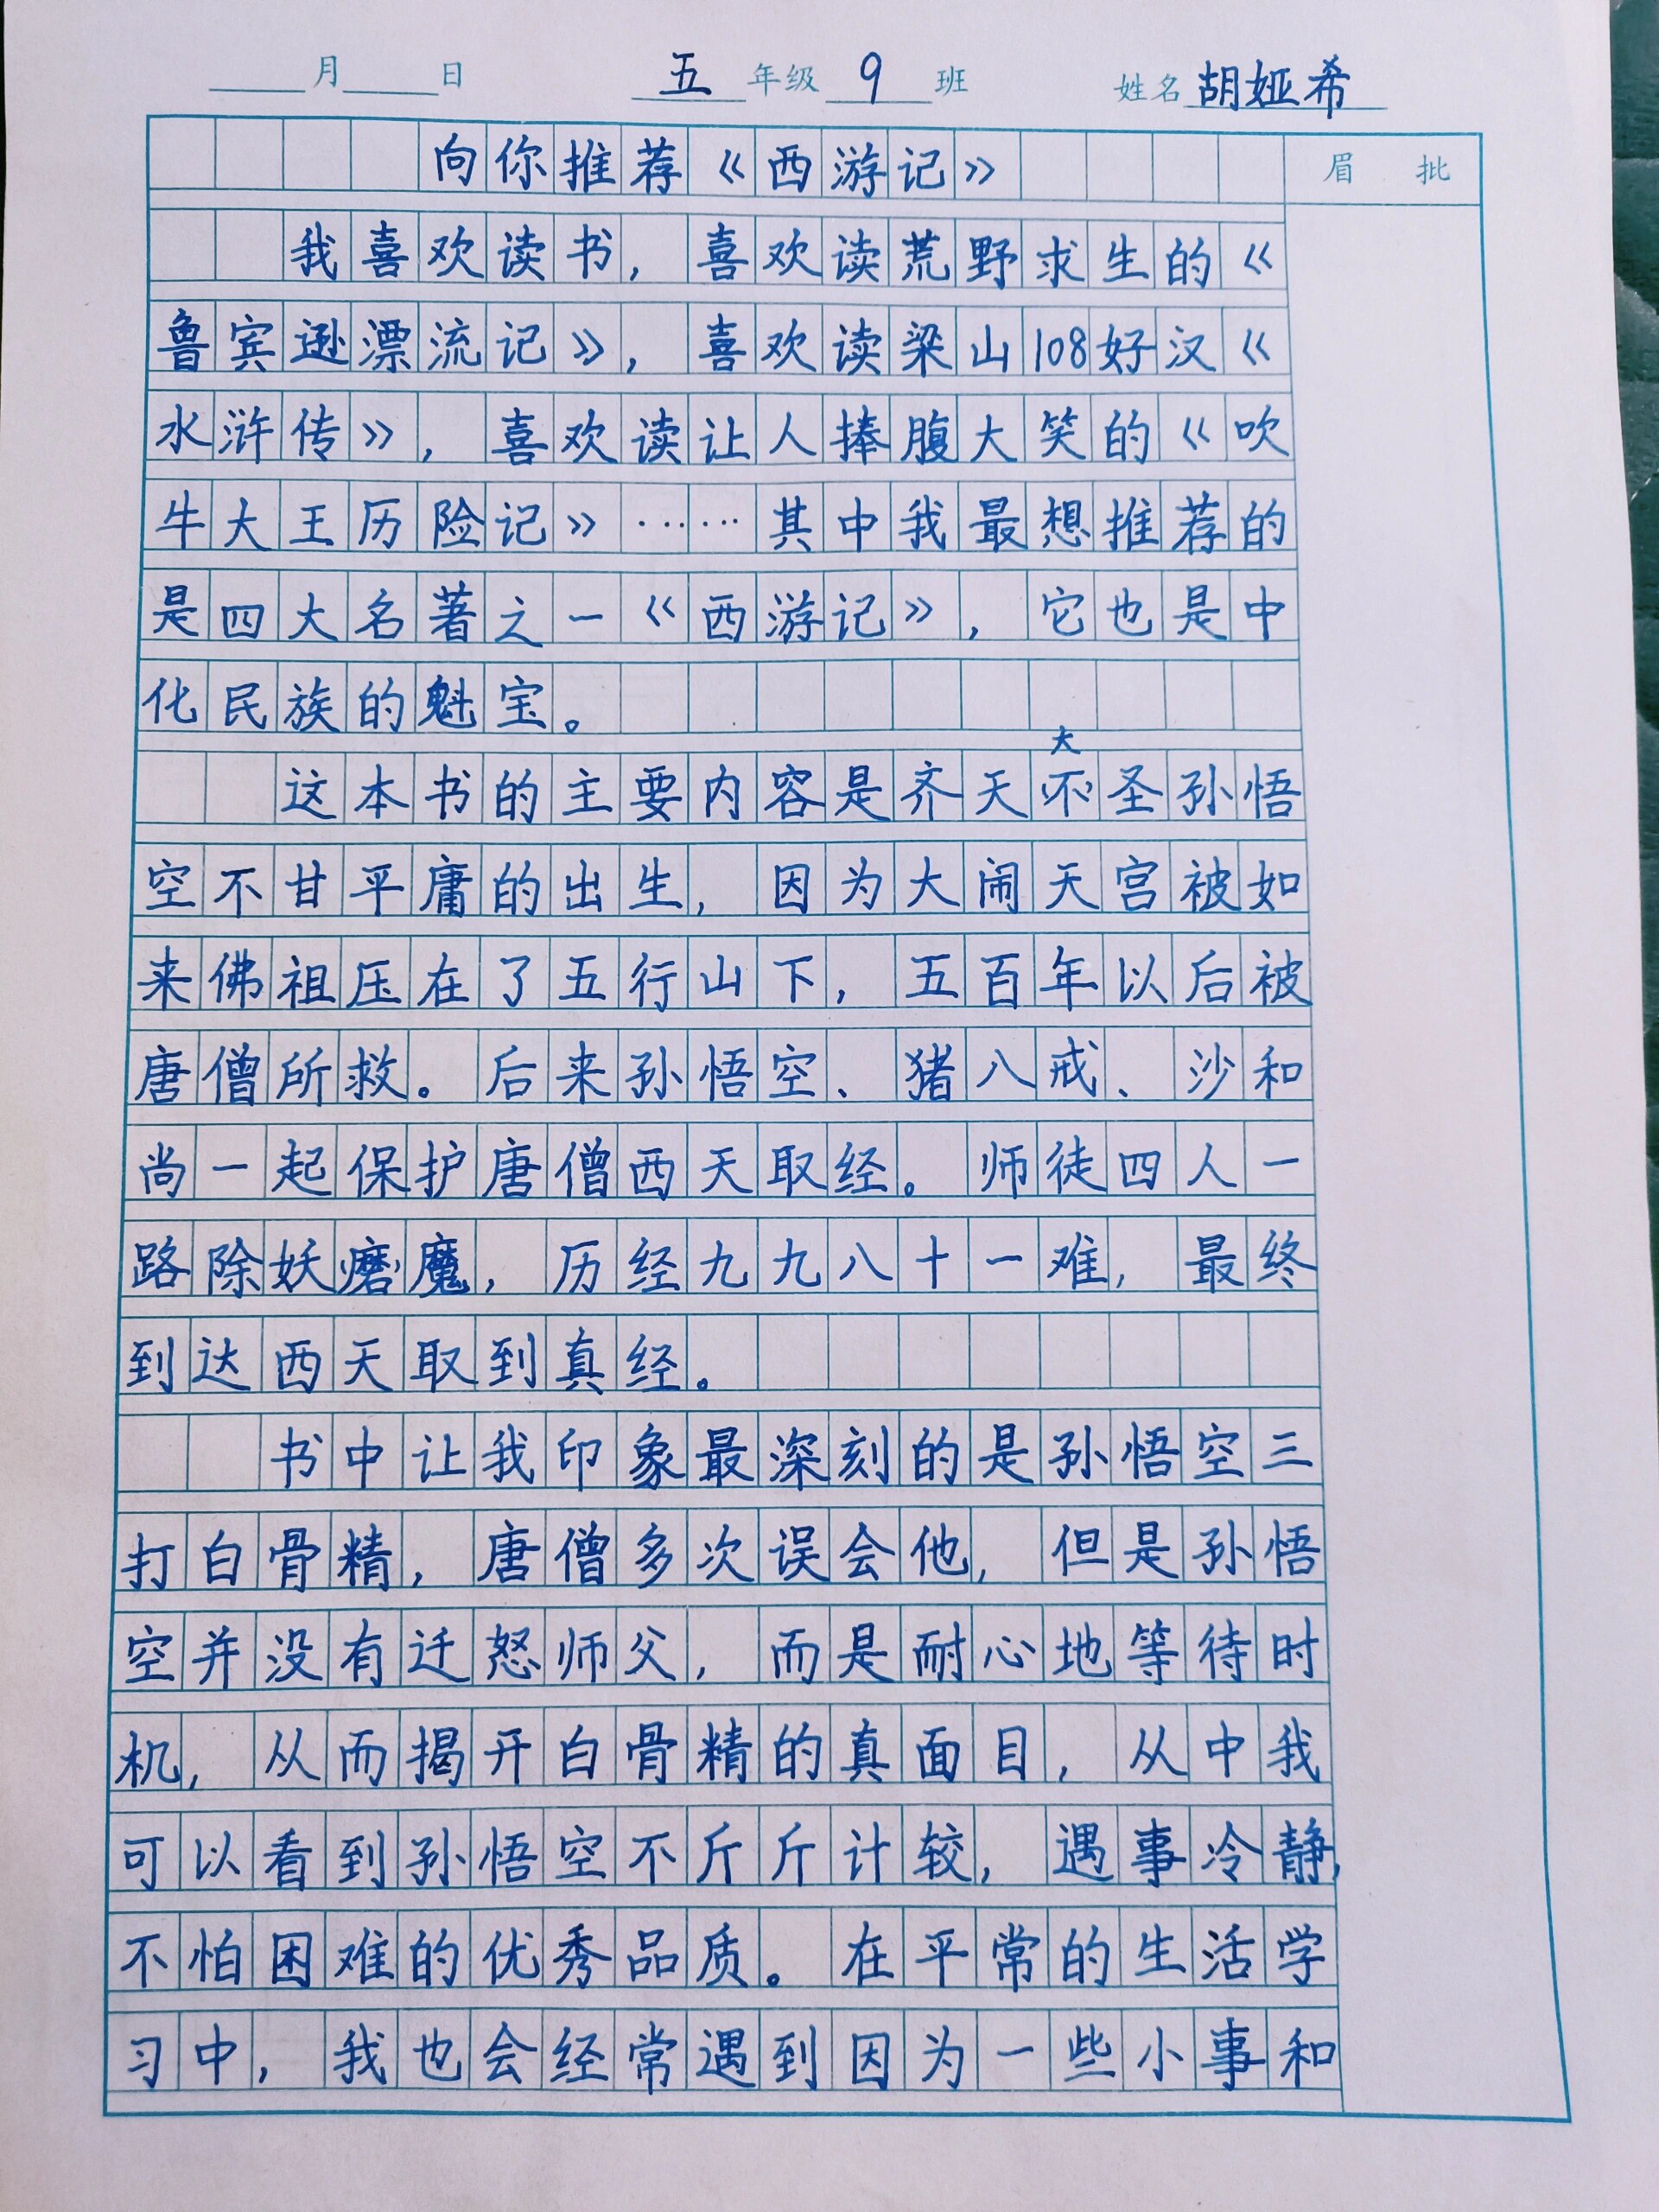 月 日 五 年级 9 班 姓名 胡娅希
向你推荐《西游记》
眉 批
我喜欢读书，喜欢读荒野求生的《
鲁宾逊漂流记》，喜欢读梁山108好汉《
水浒传》，喜欢读让人捧腹大笑的《吹
牛大王历险记》……其中我最想推荐的
是四大名著之一《西游记》，它也是中
化民族的魁宝。
大
这本书的主要内容是齐天不圣孙悟
空不甘平庸的出生，因为大闹天宫被如
来佛祖压在了五行山下，五百年以后被
唐僧所救。后来孙悟空、猪八戒、沙和
尚一起保护唐僧西天取经。师徒四人一
路除妖魔，历经九九八十一难，最终
到达西天取到真经。
书中让我印象最深刻的是孙悟空三
打白骨精，唐僧多次误会他，但是孙悟
空并没有迁怒师父，而是耐心地等待时
机，从而揭开白骨精的真面目，从中我
可以看到孙悟空不斤斤计较，遇事冷静，
不怕困难的优秀品质。在平常的生活学
习中，我也会经常遇到因为一些小事和